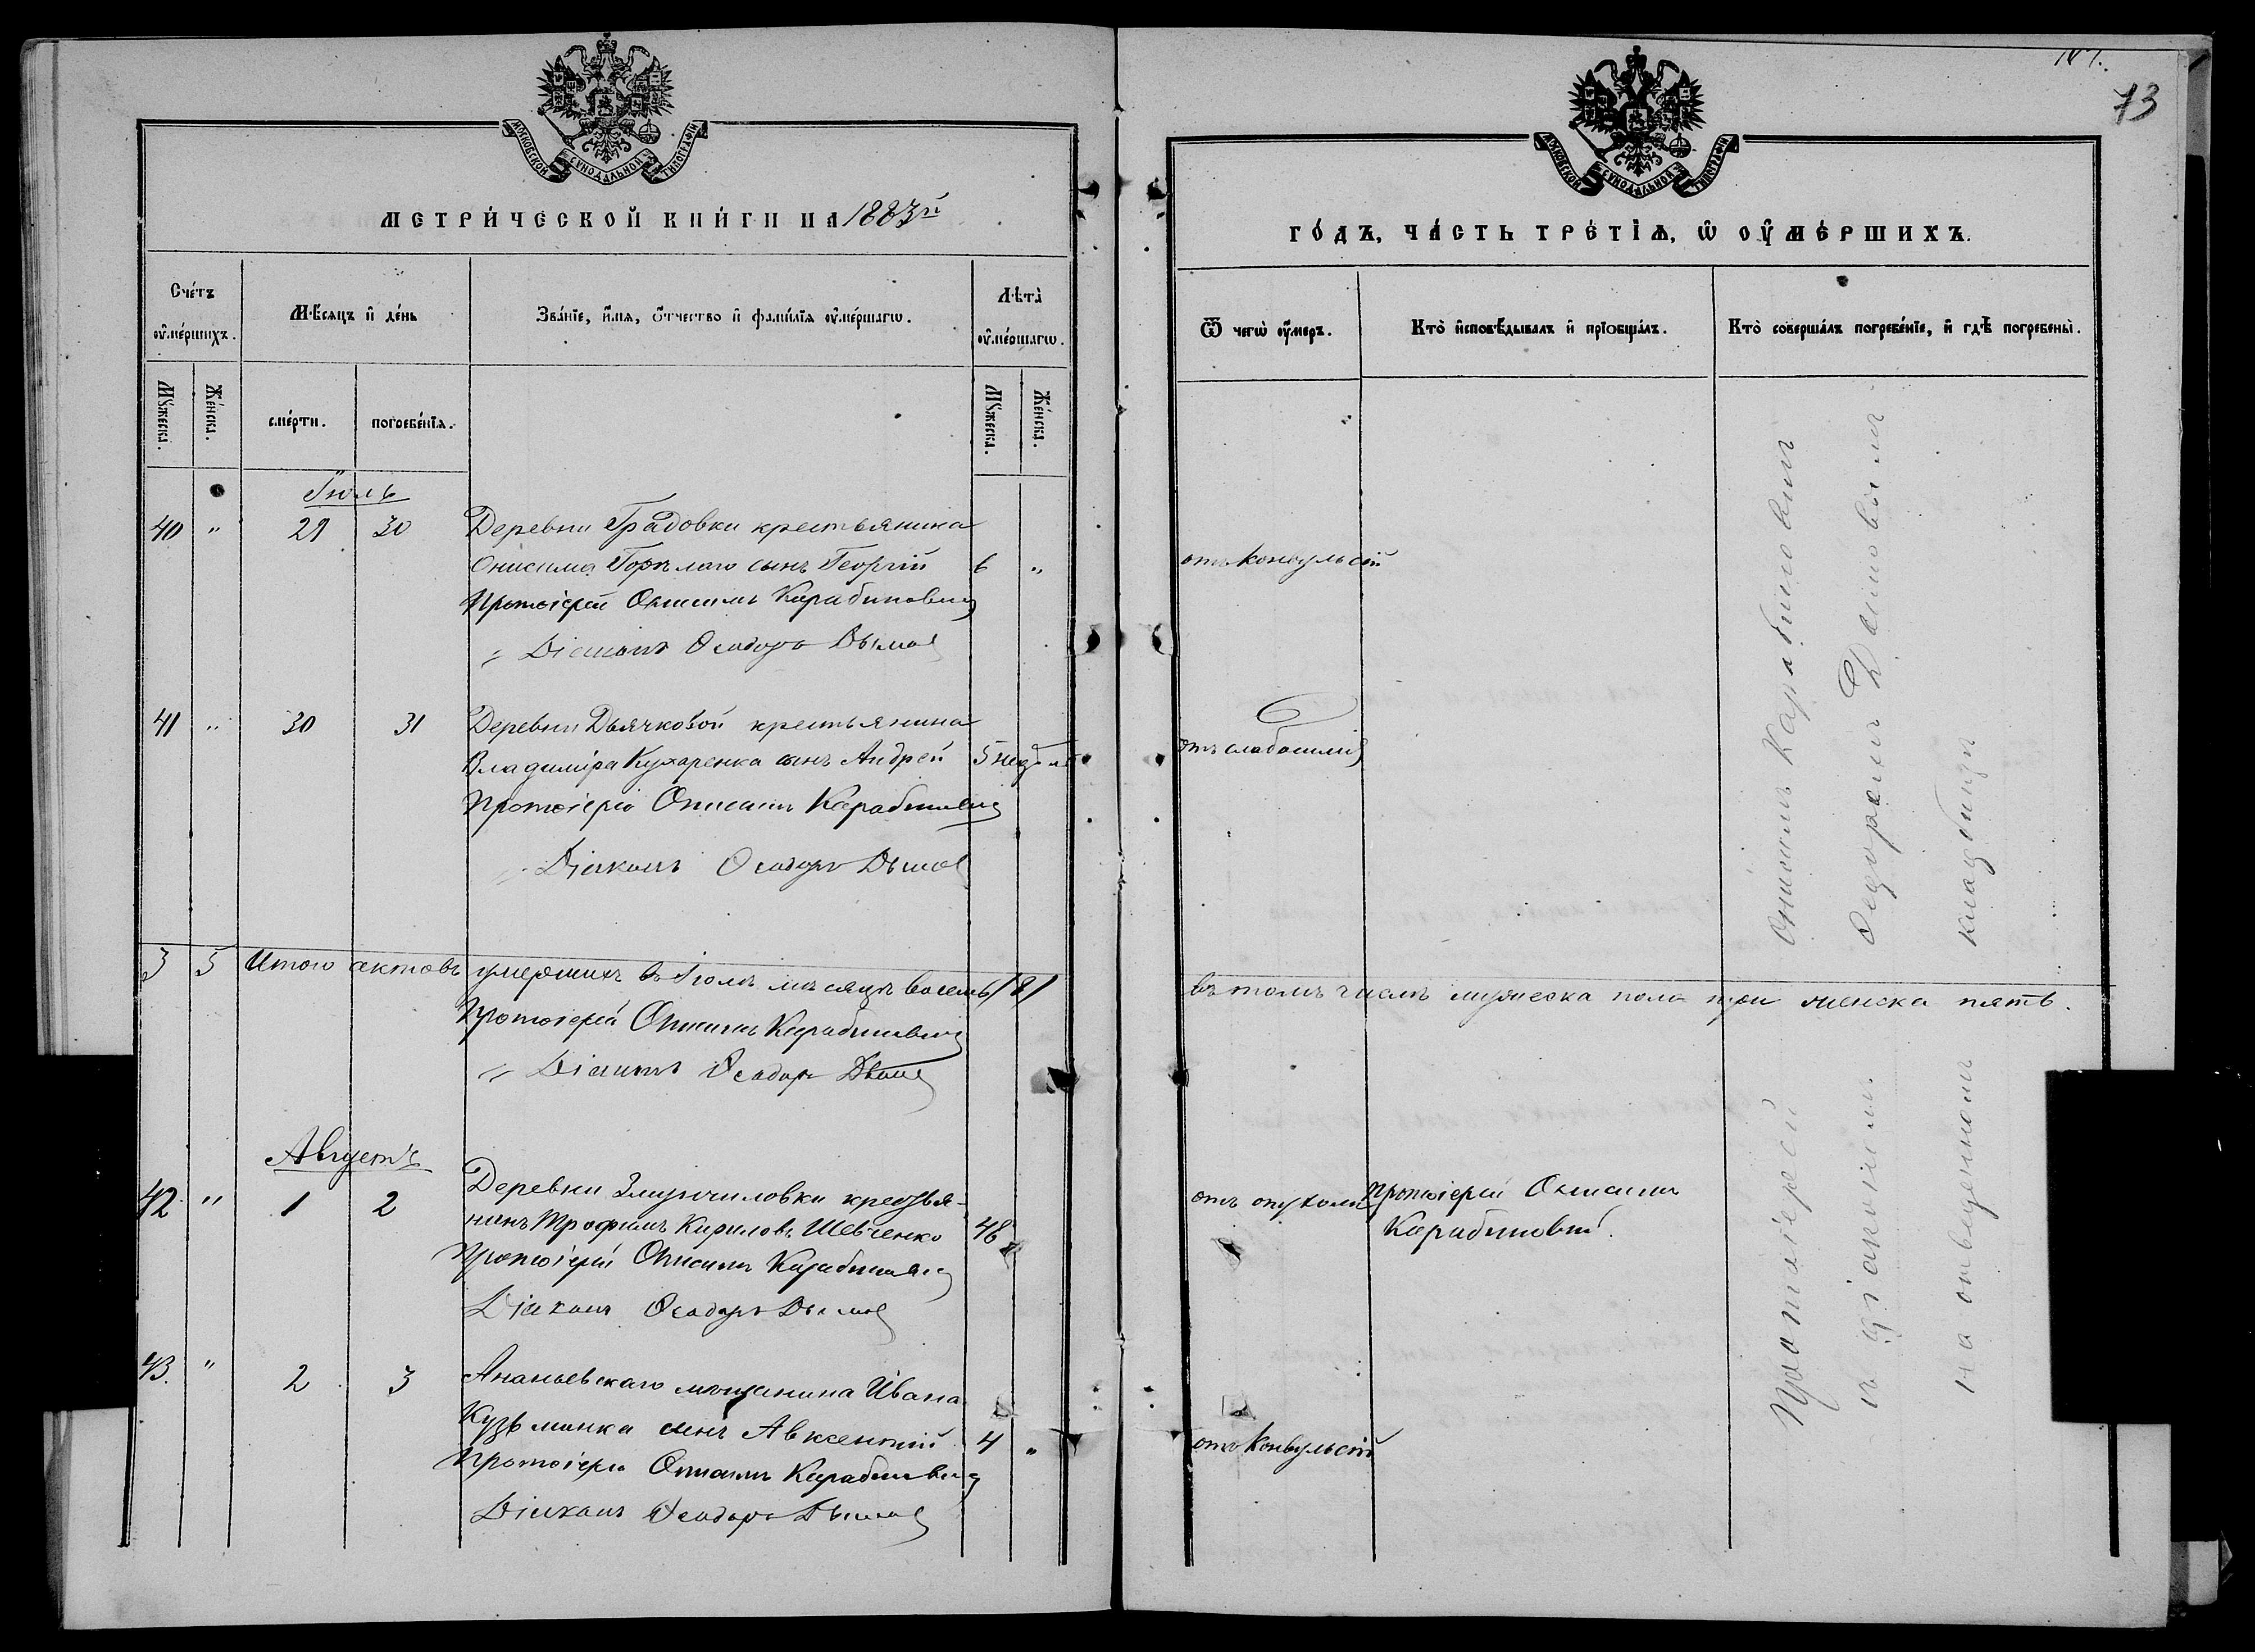 МОСКОВСКОЙ СѴНОДАЛЬНОЙ ТИПОГРАФІИ
МЕТРИ́ЧЕСКОЙ КНИ́ГИ НА 1883й
Сче́тъ ᲂу҆ме́ршихъ.
Мѣ́сяцъ и҆ де́нь
Зва́нїе, и҆́мѧ, ѻ҆́тчество и҆ фами́лїѧ ᲂу҆ме́ршагѡ.
Лѣта̀ ᲂу҆ме́ршагѡ.
Мꙋ́жеска.
Же́нска.
сме́рти.
погребе́нїѧ.
Мꙋ́жеска.
Же́нска.
Іюль
40 " 29 30 Деревни Градовки крестьянина
Онисима Горѣлаго сынъ Георгій 6 "
Протоіерей Онисимъ Карабиновичъ
" Діаконъ Ѳеодоръ
41 " 30 31 Деревни Дьячковой крестьянина
Владиміра Кухаренка сынъ Андрей 5 недѣль
Протоіерей Онисимъ Карабиновичъ
" Діаконъ Ѳеодоръ
3 5 Итого актовъ умершихъ въ Іюлѣ мѣсяцѣ восемь /8/
Протоіерей Онисимъ Карабиновичъ
" Діаконъ Ѳеодоръ
Августъ
42 " 1 2 Деревни крестья-
нинъ Трофимъ Кириловъ Шевченко 48 "
Протоіерей Онисимъ Карабиновичъ
Діаконъ Ѳеодоръ
43. " 2 3 Ананьевскаго мѣщанина Ивана
Кузьменка сынъ Авксентій 4 "
Протоіерей Онисимъ Карабиновичъ
Діаконъ Ѳеодоръ
73
МОСКОВСКОЙ СѴНОДАЛЬНОЙ ТИПОГРАФІИ
ГО́ДЪ, ЧА́СТЬ ТРЕ́ТІѦ, Ѡ҆ ОУ҆МЕ́РШИХЪ.
Ѿ чегѡ̀ ᲂу҆́меръ.
Кто̀ и҆сповѣ́дывалъ и҆ прїѡбща́лъ.
Кто̀ соверша́лъ погребе́нїе, и҆ гдѣ̀ погребены̀.
отъ конвульсій
отъ слабосилія
въ томъ числѣ мужеска пола три женска пять.
отъ опухоли Протоіерей Онисимъ
Карабиновичъ.
отъ конвульсій
Протоіерей Онисимъ Карабиновичъ
съ діакономъ Ѳеодоромъ
на отведенномъ кладбищѣ